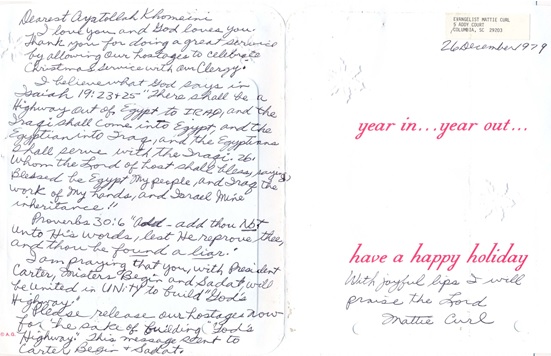 Dearest Ayatollah Khomeini
I love you and God loves you.
Thank you for doing a great service
by allowing our hostages to celebrate
Christmas service with our Clergy.
I believe what God says in
Isaiah 19:23+25 "There shall be a
Highway out of Egypt to IRAQ, and the
Iraqi shall come into Egypt, and the
Egyptian into Iraq, and the Egyptians
shall serve with the Iraqi. 26'
Whom the Lord of host shall bless, saying
Blessed be Egypt My people, and Iraq the
work of My hands, and Israel Mine
inheritance!!
Proverbs 30:6 "Add - add thou NOT
unto His words, lest He reprove thee,
and thou be found a liar."
I am praying that you, with President
Carter, Misters Begin and Sadat, will
be united in UNITY to build "God's
Highway."
Please release our hostages now
for the sake of building "God's
Highway." This message sent to
Carter, Begin + Sadat.
EVANGELIST MATTIE CURL
5 ADDY COURT
COLUMBIA, SC 29203
26 December 1979
year in...year out...
have a happy holiday
With joyful lips I will
praise the Lord
Mattie Curl